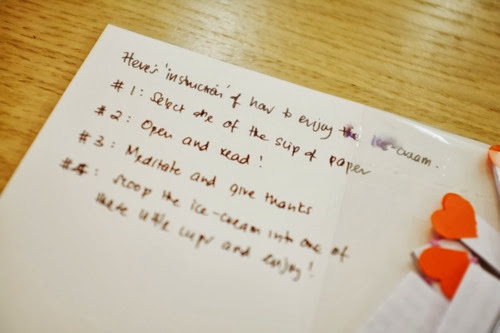 Here's 'instruction' of how to enjoy the ice-cream.
# 1: Select one of the slip of paper
# 2: Open and read!
# 3: Meditate and give thanks
# 4: Scoop the ice-cream into one of
these little cups and enjoy!